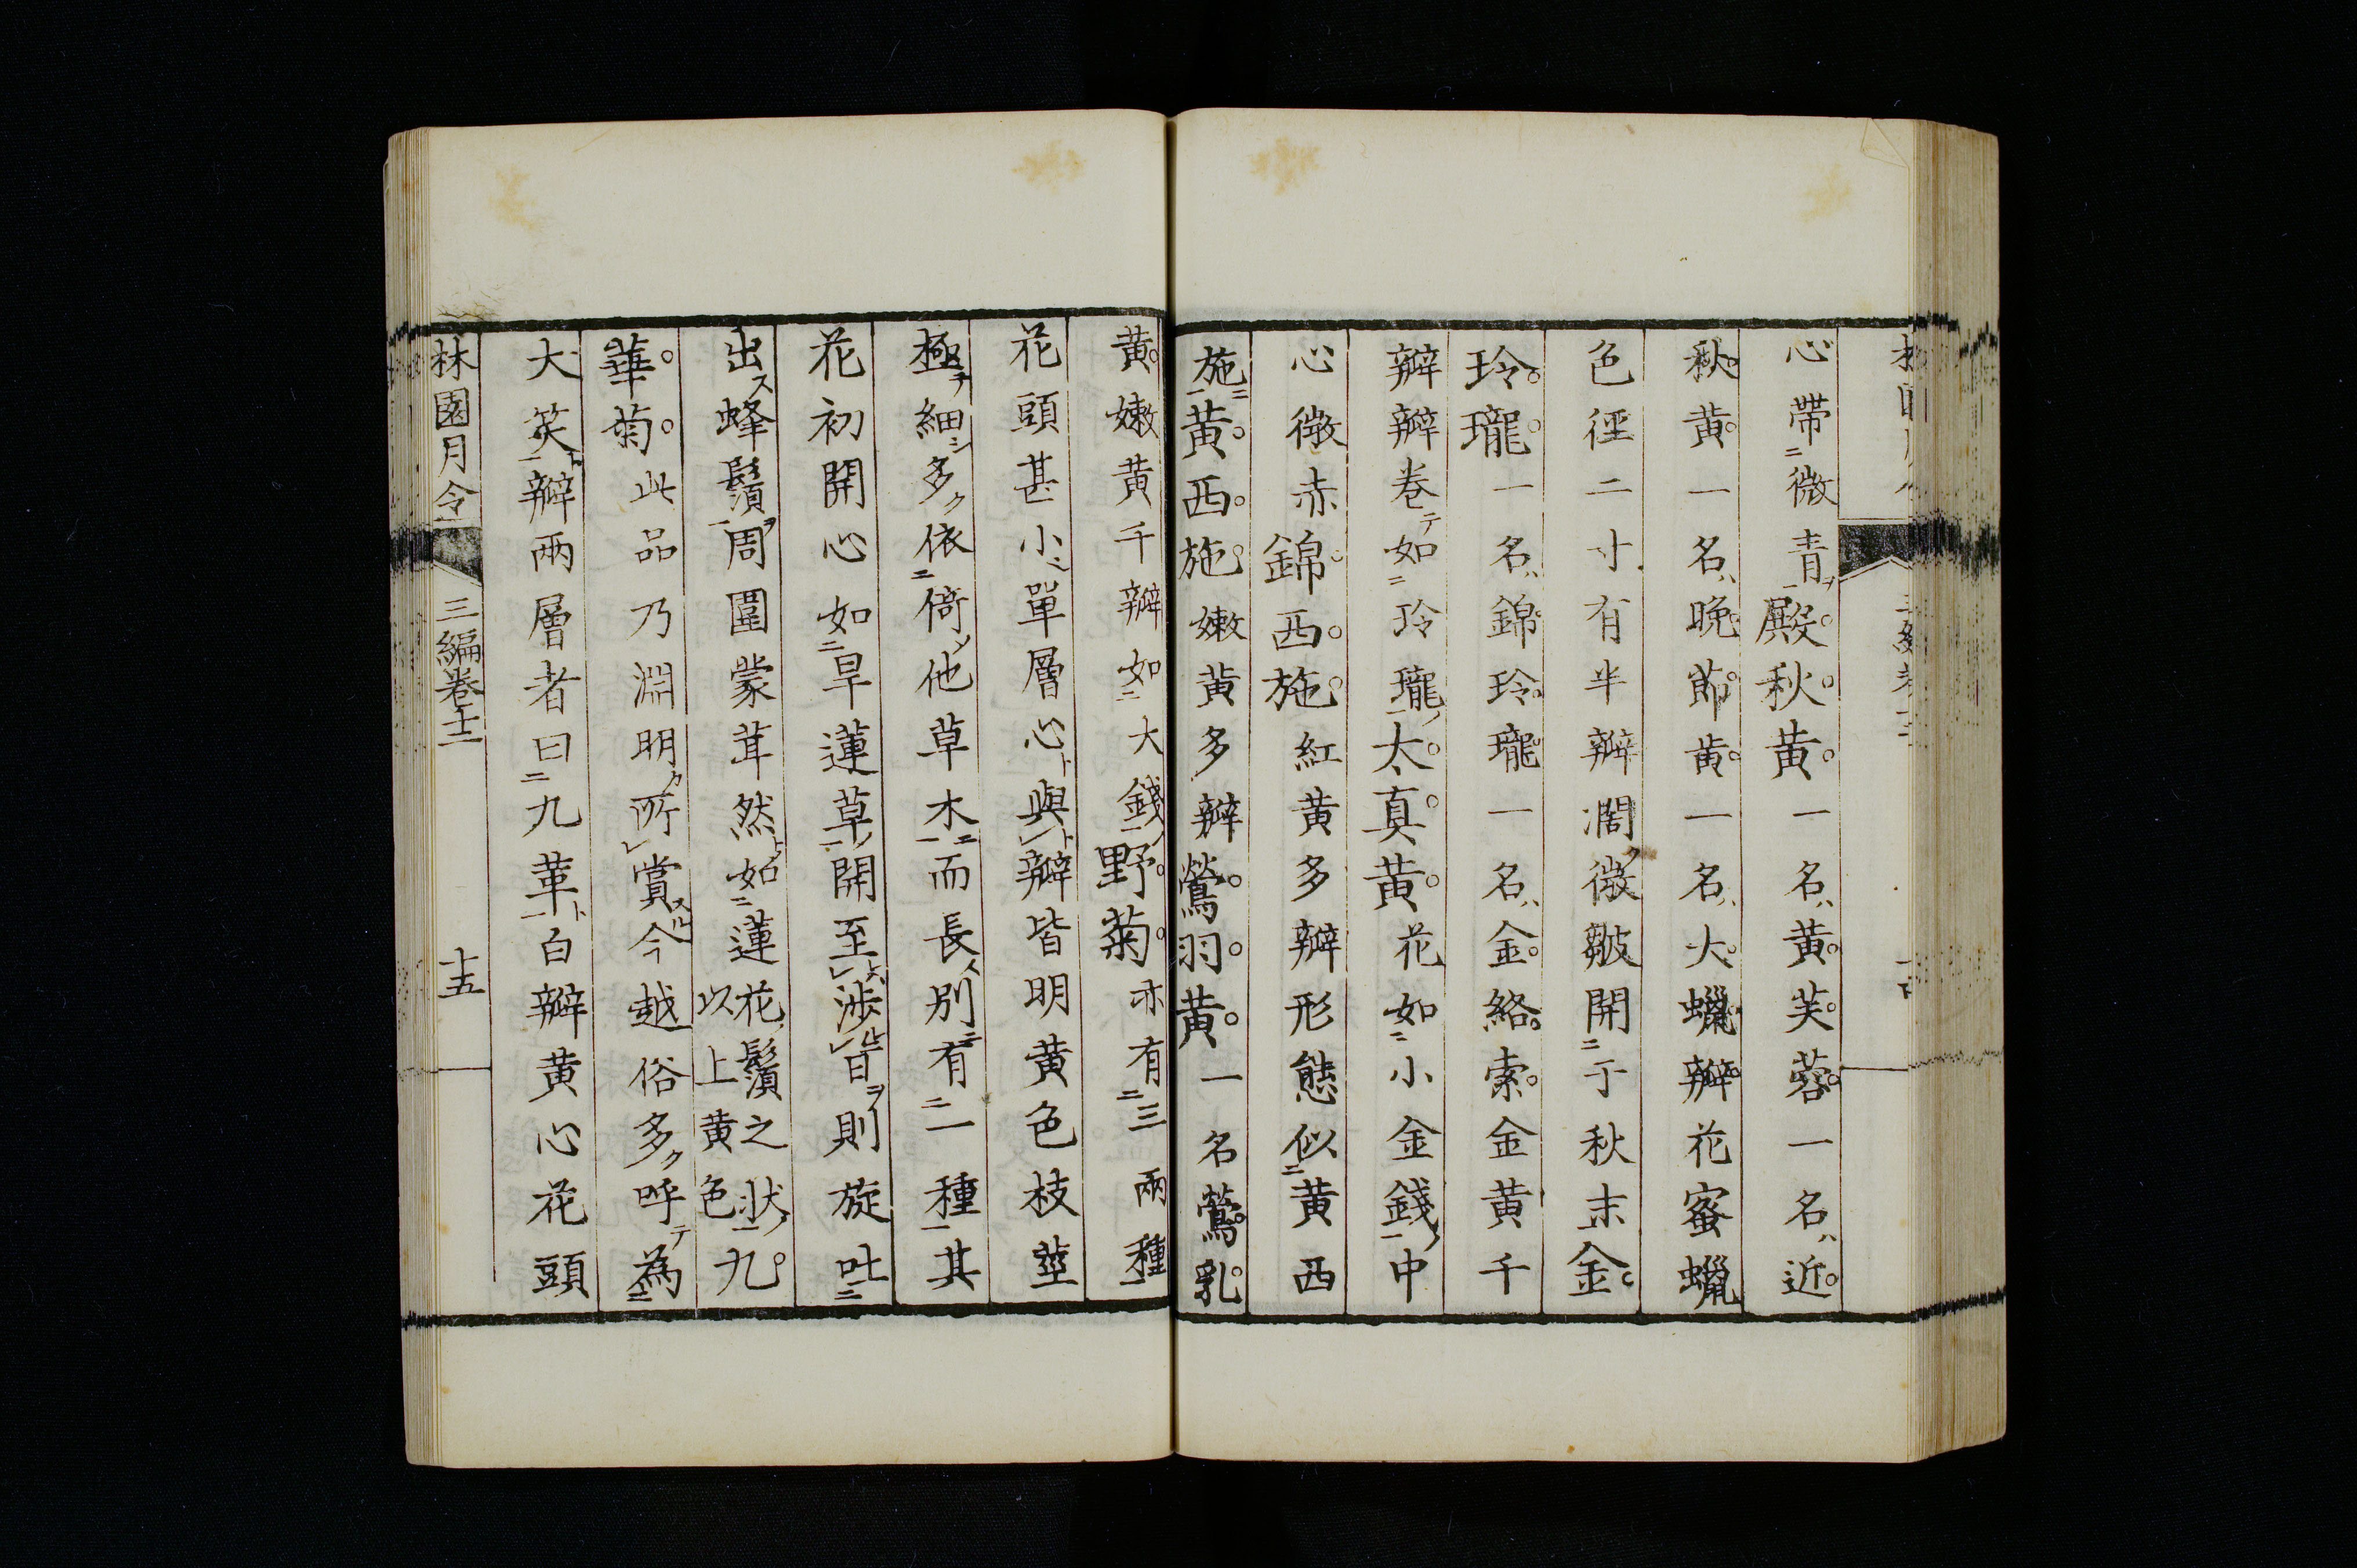 心帶微青殿秋黄一名黄芙蓉一名近
秋黄一名晚節黄一名大蠟瓣花蜜蠟
色徑二寸有半瓣濶微皺開于秋末金
玲瓏一名錦玲瓏一名金絡索金黄千
瓣瓣卷如玲瓏太真黄花如小金錢中
心微赤錦西施紅黄多瓣形態似黄西
施黄西施嫩黄多瓣鶯羽黄一名鶯乳
黄嫩黄千瓣如大錢野菊亦有三兩種
花頭甚小單層心與瓣皆明黄色枝莖
極細多依倚他草木而長別有一種其
花初開心如旱蓮草開至渉旬則旋吐
出蜂鬚周圍蒙茸然如蓮花鬚之状以上黄色九
華菊此品乃淵明所賞今越俗多呼為
大笑瓣兩層者曰九華白瓣黄心花頭
林園月令 三編卷十二 十五